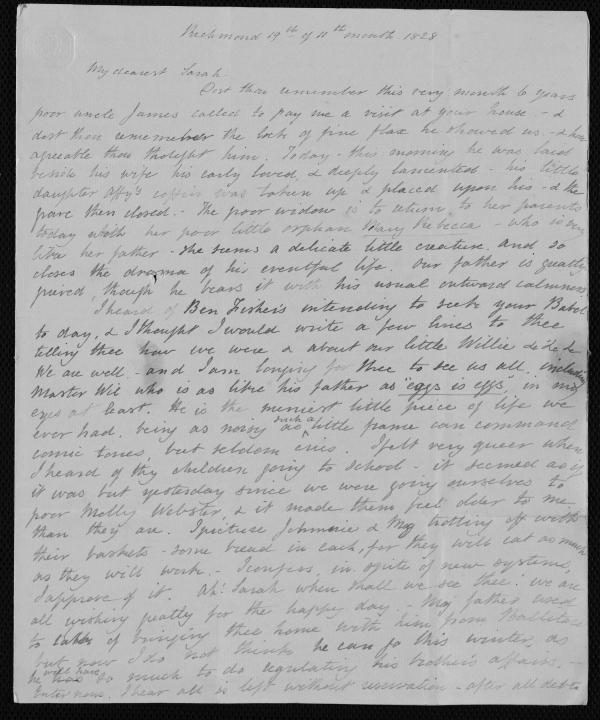 Richmond 19th of 11th month 1828
My dearest Sarah
Dost thou remember this very month 6 years
poor uncle James called to pay me a visit at your house - &
dost thou remember the lock of fine flax he showed us - & how
agreable thou thought him. Today - this morning he was laid
beside his wife his early loved, & deeply lamented - his little
daughter Affy's coffin was taken up & placed upon his - & the
grave then closed. - The poor widow is to return to her parents
today with her poor little orphan Mary Rebecca - who is very
like her father - she seems a delicate little creature. and so
closes the drama of his eventful life. Our father is greatly
grieved, though he bears it with his usual outward calmness
I heard of Ben intending to seek your Babel
to day, & I thought I would write a few lines to thee
telling thee how we were & about our little Willie &c &c &
We are well - and I am longing for thee to see us all, including
Master Wil who is as like his father as "eggs is eggs", in my
eyes at least. He is the merriest little piece of life we
ever had, being as noisy as such a little frame can command
comic tones, but seldom cries. I felt very queer when
I heard of thy children going to school - it seemed as if
it was but yesterday since we were going ourselves to
poor Molly Webster, & it made them feel older to me
than they are. I picture Johnnie & Mg trotting off with
their baskets - some bread in each, for they will eat as much
as they will work. - I confess, in spite of new systems,
I approve of it. Ah! Sarah when shall we see thee! we are
all wishing greatly for the happy day - My father used
to talk of bringing thee home with him from Ballitore
but now I do not think he can go this winter, as
he will have so much to do regulating his brother's affairs. -
Enter nous. I hear all is left without reservation - after all debts